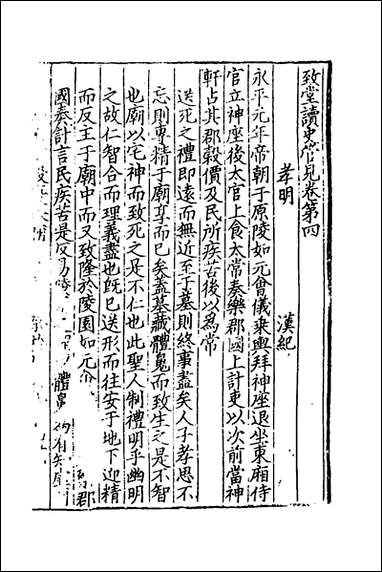 致堂讀史管見卷第四
孝明　漢紀
永平元年帝朝于原陵如元會儀乘輿拜神座退坐東廂侍
官立神座後太官上食太常奏樂郡國上計吏以次前當神
軒占其郡穀價及民所疾苦後以為常
送死之禮即遠而無近至于墓則終事盡矣人子孝思不
忘則專精于廟享而已矣蓋墓藏體魄而致生之是不智
也廟以宅神而致死之是不仁也此聖人制禮明乎幽明
之故仁智合而理義盡也既已送形而往安于地下迎精
而反主于廟中而又致隆於陵園如元會
郡
國奏計言民疾苦是反易陵
體魄